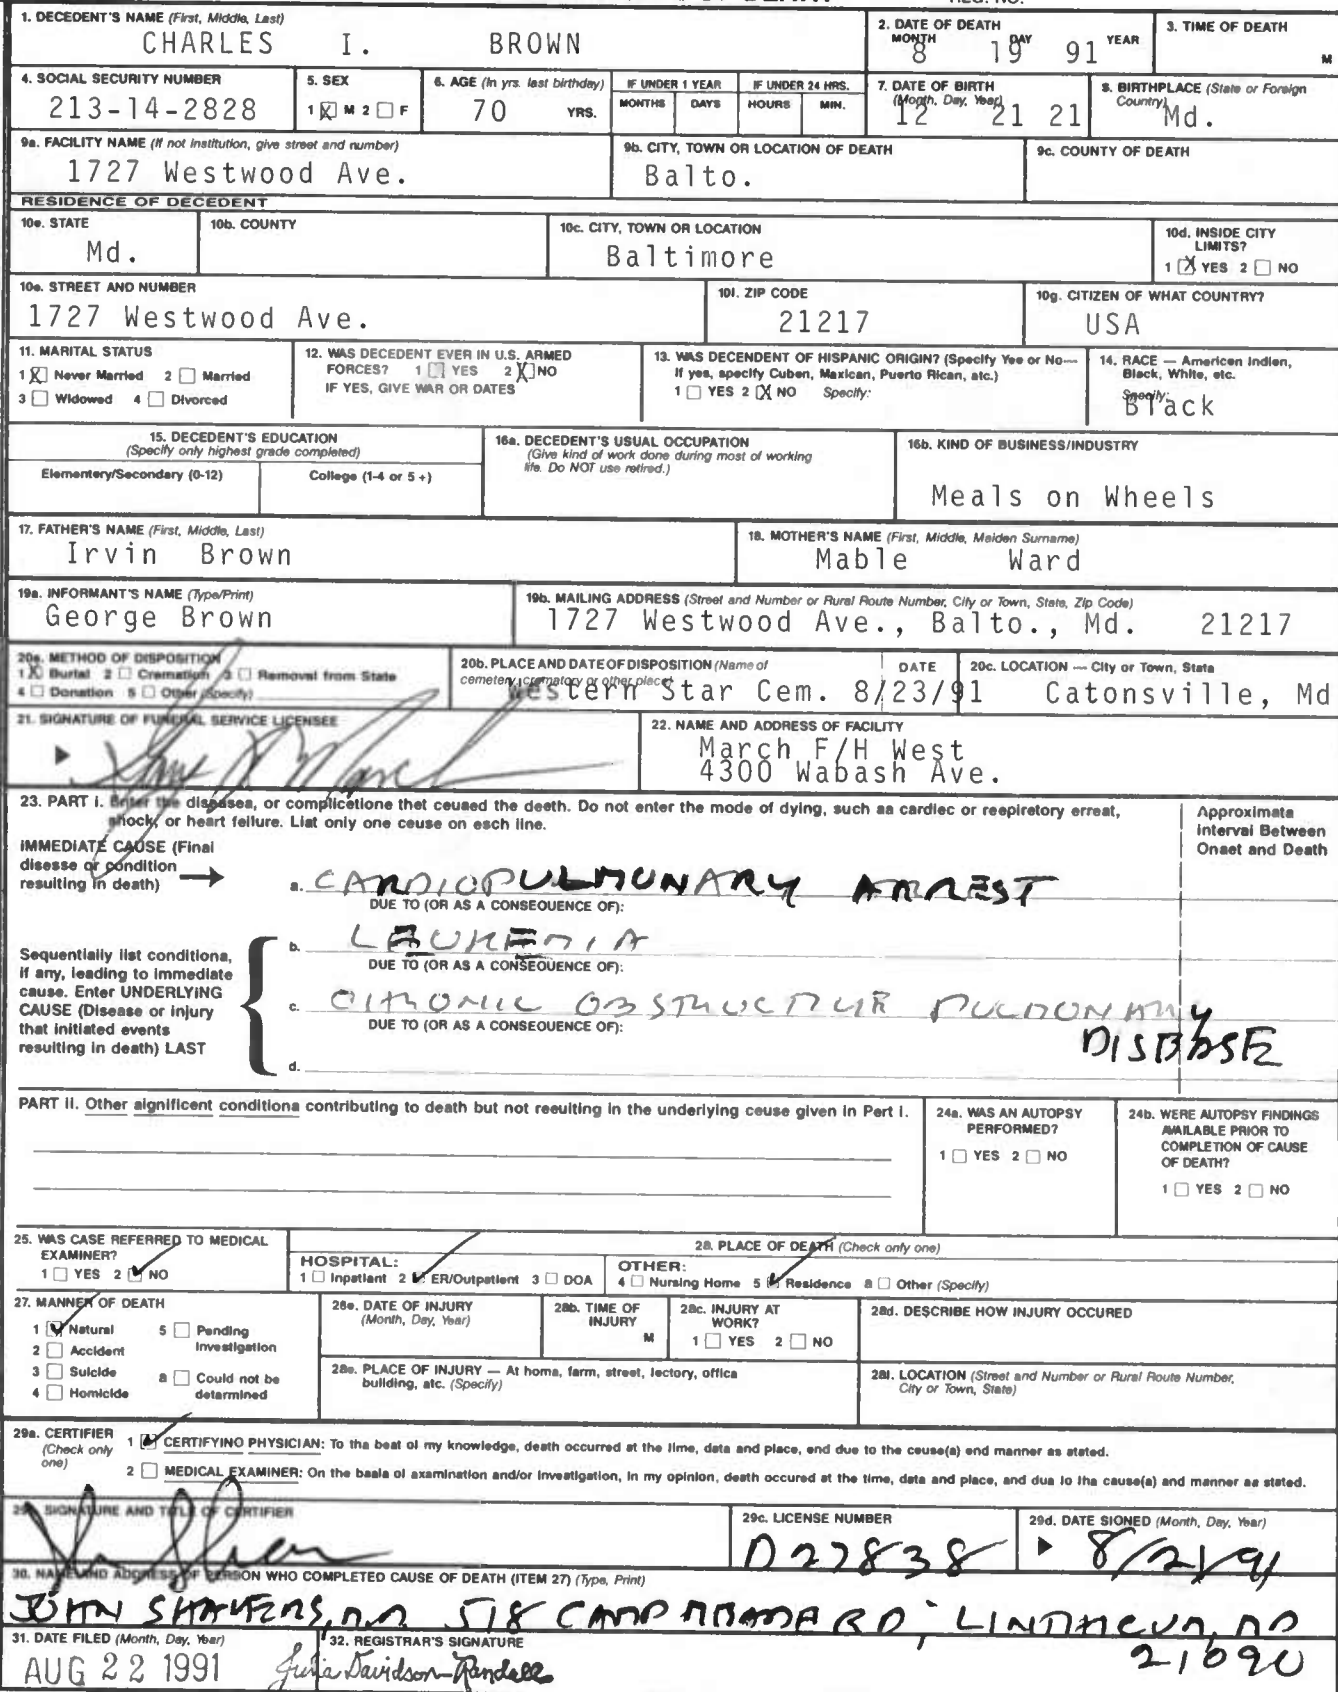 1. DECEDENT'S NAME (First, Middle, Last)
CHARLES I. BROWN
2. DATE OF DEATH
MONTH DAY YEAR
8 19 91
3. TIME OF DEATH
M
4. SOCIAL SECURITY NUMBER
213-14-2828
5. SEX
1 X M 2 F
6. AGE (In yrs. last birthday)
70 YRS.
IF UNDER 1 YEAR
MONTHS DAYS
IF UNDER 24 HRS.
HOURS MIN.
7. DATE OF BIRTH
(Month, Day, Year)
12 21 21
8. BIRTHPLACE (State or Foreign
Country)
Md.
9a. FACILITY NAME (If not institution, give street and number)
1727 Westwood Ave.
9b. CITY, TOWN OR LOCATION OF DEATH
Balto.
9c. COUNTY OF DEATH
RESIDENCE OF DECEDENT
10a. STATE
Md.
10b. COUNTY
10c. CITY, TOWN OR LOCATION
Baltimore
10d. INSIDE CITY
LIMITS?
1 X YES 2 NO
10e. STREET AND NUMBER
1727 Westwood Ave.
10f. ZIP CODE
21217
10g. CITIZEN OF WHAT COUNTRY?
USA
11. MARITAL STATUS
1 X Never Married 2 Married
3 Widowed 4 Divorced
12. WAS DECEDENT EVER IN U.S. ARMED
FORCES? 1 YES 2 X NO
IF YES, GIVE WAR OR DATES
13. WAS DECENDENT OF HISPANIC ORIGIN? (Specify Yes or No—
If yes, specify Cuban, Mexican, Puerto Rican, etc.)
1 YES 2 X NO Specify:
14. RACE — American Indian,
Black, White, etc.
Specify:
Black
15. DECEDENT'S EDUCATION
(Specify only highest grade completed)
Elementary/Secondary (0-12) College (1-4 or 5 +)
16a. DECEDENT'S USUAL OCCUPATION
(Give kind of work done during most of working
life. Do NOT use retired.)
16b. KIND OF BUSINESS/INDUSTRY
Meals on Wheels
17. FATHER'S NAME (First, Middle, Last)
Irvin Brown
18. MOTHER'S NAME (First, Middle, Maiden Surname)
Mable Ward
19a. INFORMANT'S NAME (Type/Print)
George Brown
19b. MAILING ADDRESS (Street and Number or Rural Route Number, City or Town, State, Zip Code)
1727 Westwood Ave., Balto., Md. 21217
20a. METHOD OF DISPOSITION
1 X Burial 2 Cremation 3 Removal from State
4 Donation 5 Other (Specify)
20b. PLACE AND DATE OF DISPOSITION (Name of
cemetery, crematory or other place)
DATE
Western Star Cem. 8/23/91
20c. LOCATION — City or Town, State
Catonsville, Md
21. SIGNATURE OF FUNERAL SERVICE LICENSEE
22. NAME AND ADDRESS OF FACILITY
March F/H West
4300 Wabash Ave.
23. PART I. Enter the diseases, or complications that caused the death. Do not enter the mode of dying, such as cardiac or respiratory arrest,
shock, or heart failure. List only one cause on each line.
Approximate
Interval Between
Onset and Death
IMMEDIATE CAUSE (Final
disease or condition
resulting in death)
a. CARDIOPULMONARY ARREST
DUE TO (OR AS A CONSEQUENCE OF):
Sequentially list conditions,
if any, leading to immediate
cause. Enter UNDERLYING
CAUSE (Disease or injury
that initiated events
resulting in death) LAST
b. LEUKEMIA
DUE TO (OR AS A CONSEQUENCE OF):
c. CHRONIC OBSTRUCTIVE PULMONARY
DISEASE
DUE TO (OR AS A CONSEQUENCE OF):
d.
PART II. Other significant conditions contributing to death but not resulting in the underlying cause given in Part I.
24a. WAS AN AUTOPSY
PERFORMED?
1 YES 2 NO
24b. WERE AUTOPSY FINDINGS
AVAILABLE PRIOR TO
COMPLETION OF CAUSE
OF DEATH?
1 YES 2 NO
25. WAS CASE REFERRED TO MEDICAL
EXAMINER?
1 YES 2 ✓ NO
26. PLACE OF DEATH (Check only one)
HOSPITAL:
1 Inpatient 2 ✓ ER/Outpatient 3 DOA
OTHER:
4 Nursing Home 5 ✓ Residence 6 Other (Specify)
27. MANNER OF DEATH
1 ✓ Natural 5 Pending
Investigation
2 Accident
3 Suicide 6 Could not be
determined
4 Homicide
28a. DATE OF INJURY
(Month, Day, Year)
28b. TIME OF
INJURY
M
28c. INJURY AT
WORK?
1 YES 2 NO
28d. DESCRIBE HOW INJURY OCCURED
28e. PLACE OF INJURY — At home, farm, street, factory, office
building, etc. (Specify)
28f. LOCATION (Street and Number or Rural Route Number,
City or Town, State)
29a. CERTIFIER
(Check only
one)
1 ✓ CERTIFYING PHYSICIAN: To the best of my knowledge, death occurred at the time, date and place, and due to the cause(s) and manner as stated.
2 MEDICAL EXAMINER: On the basis of examination and/or investigation, in my opinion, death occured at the time, date and place, and due to the cause(s) and manner as stated.
29b. SIGNATURE AND TITLE OF CERTIFIER
29c. LICENSE NUMBER
D27838
29d. DATE SIGNED (Month, Day, Year)
8/21/91
30. NAME AND ADDRESS OF PERSON WHO COMPLETED CAUSE OF DEATH (ITEM 27) (Type, Print)
JOHN SHAVERS, M.D. 518 CAMP MEADE RD; LINTHICUM, MD
21090
31. DATE FILED (Month, Day, Year)
AUG 22 1991
32. REGISTRAR'S SIGNATURE
Julia Davidson-Randall